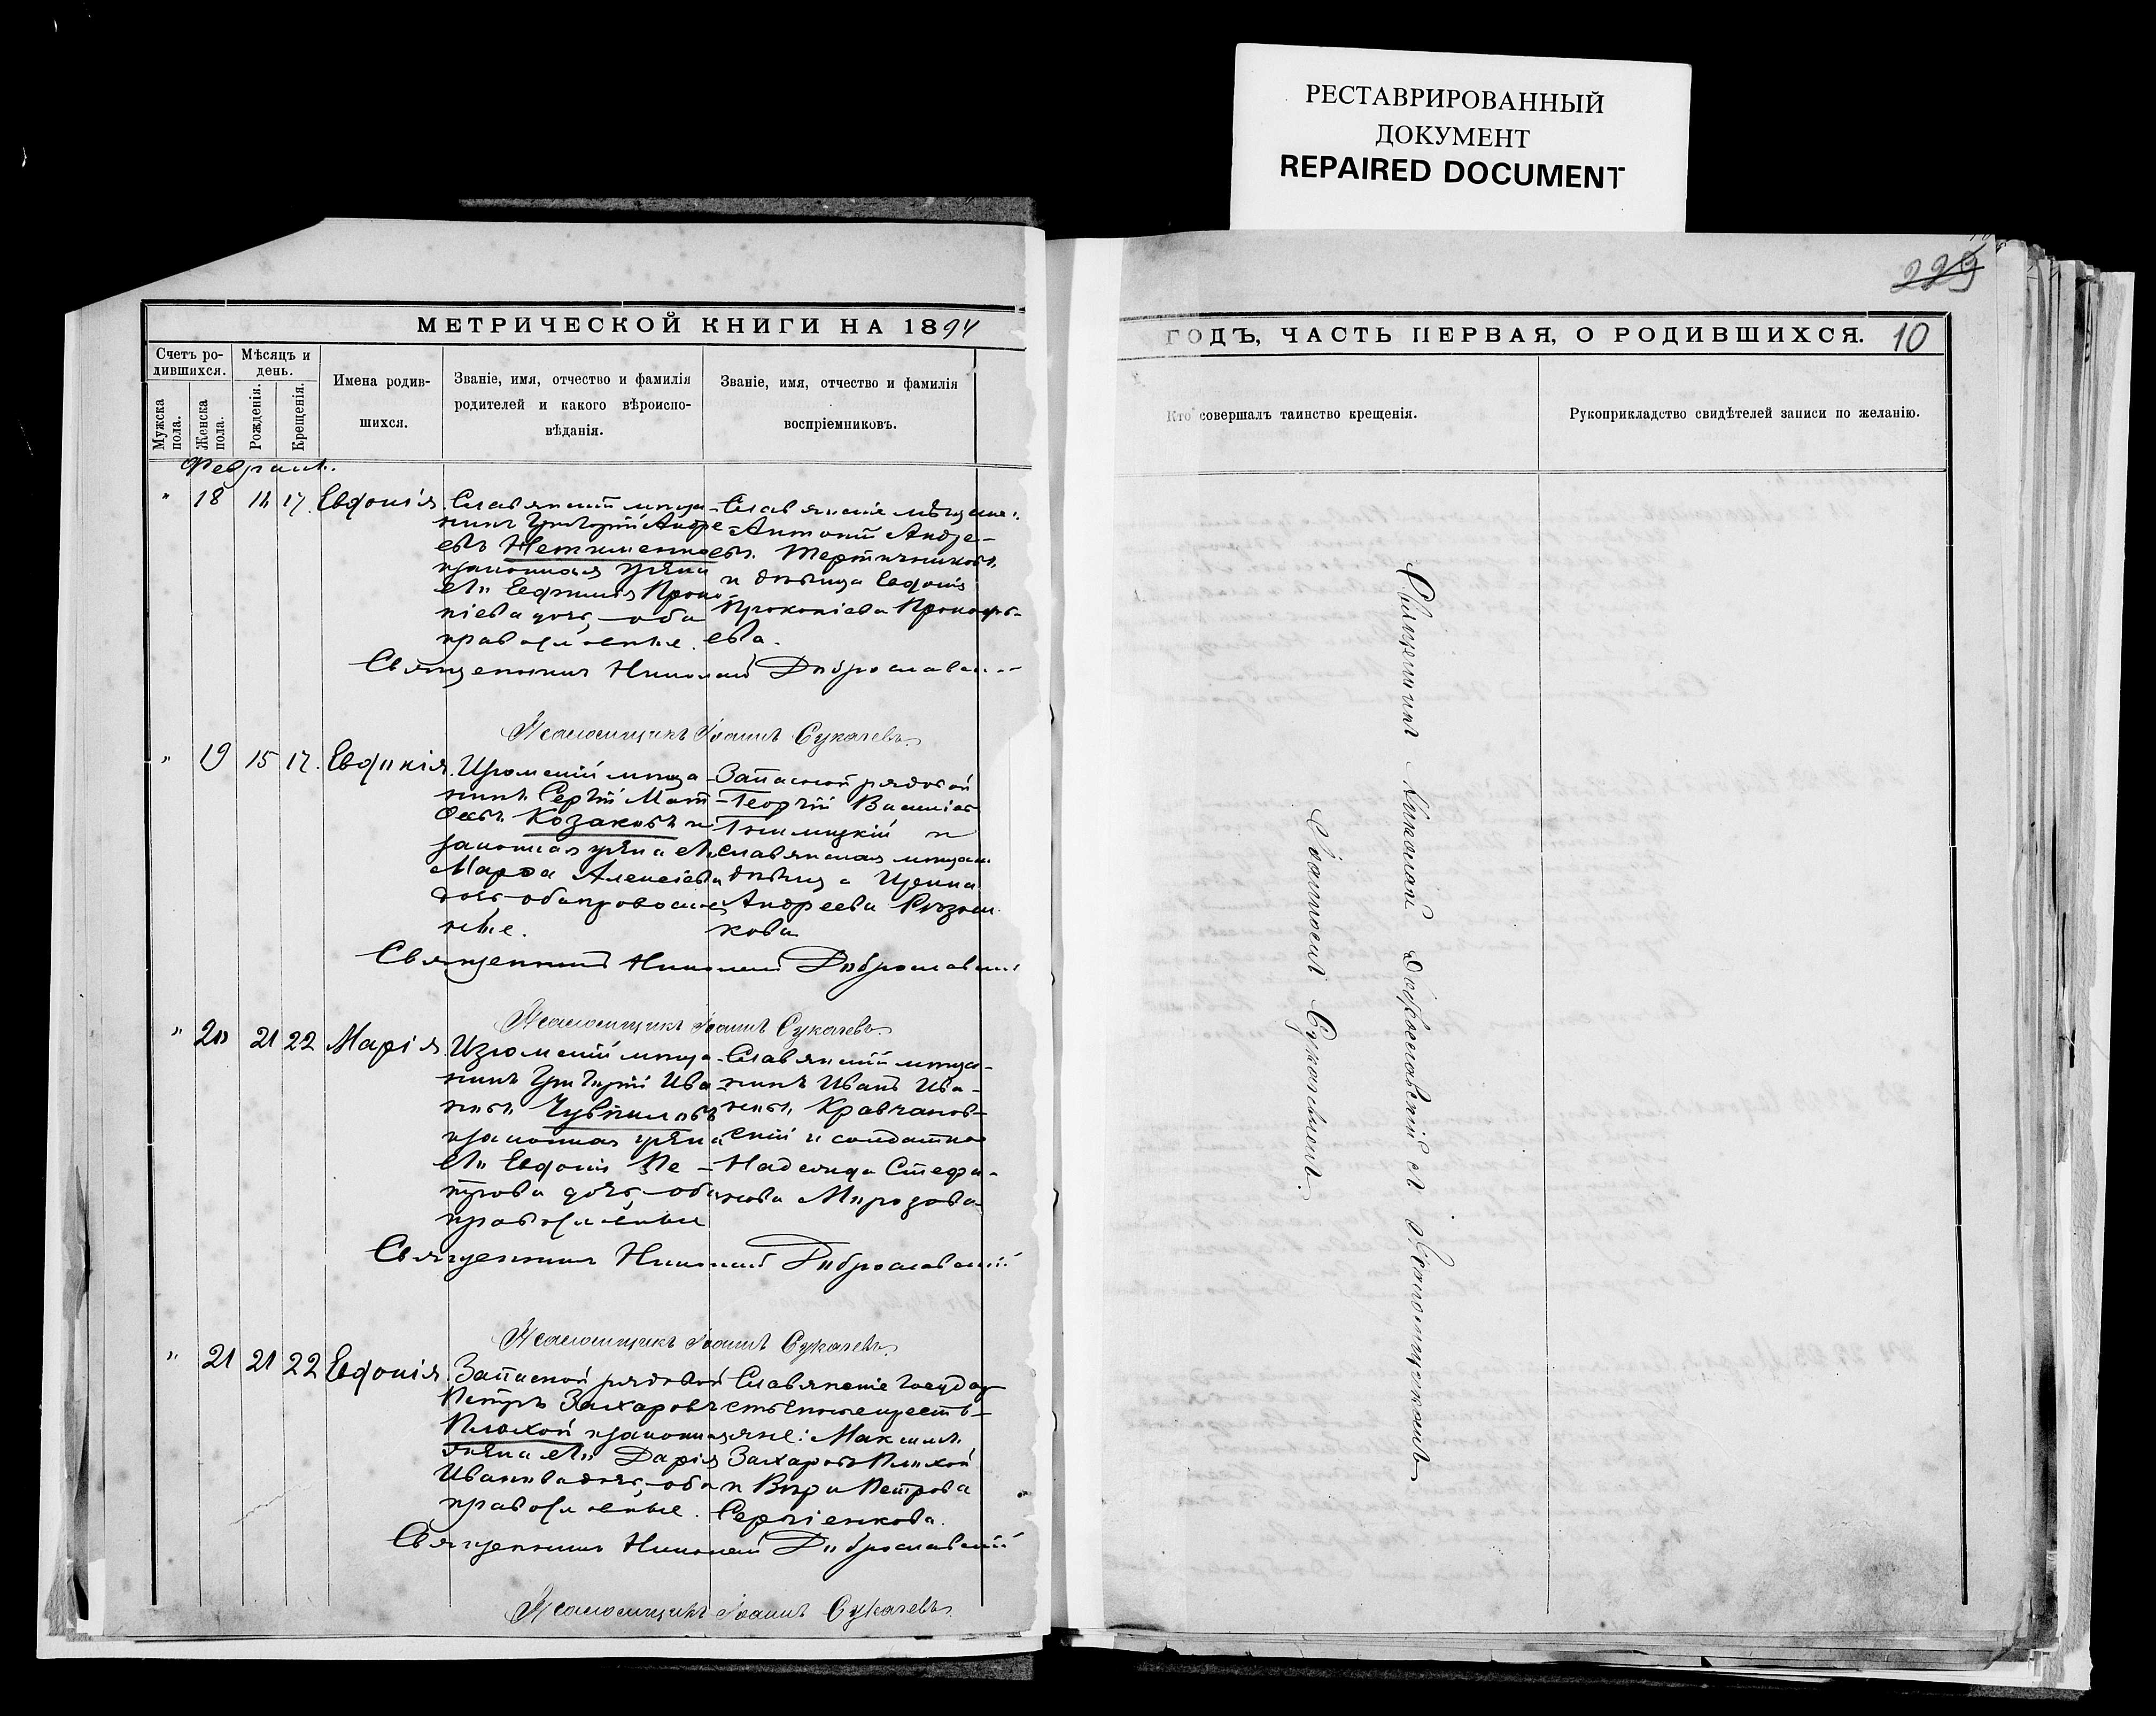 РЕСТАВРИРОВАННЫЙ
ДОКУМЕНТ
REPAIRED DOCUMENT
229
МЕТРИЧЕСКОЙ КНИГИ НА 1894
ГОДЪ, ЧАСТЬ ПЕРВАЯ, О РОДИВШИХСЯ. 10
Счетъ ро-
дившихся.
Мужска
пола.
Женска
пола.
Мѣсяцъ и
день.
Рожденія.
Крещенія.
Имена родив-
шихся.
Званіе, имя, отчество и фамилія
родителей и какого вѣроиспо-
вѣданія.
Званіе, имя, отчество и фамилія
воспріемниковъ.
Кто совершалъ таинство крещенія.
Рукоприкладство свидѣтелей записи по желанію.
" 18 17. Евдокія
Славянскій мѣща-
нинъ Григорій Андре-
евъ
законная жена
его Прок-
піева дочь, оба
православные.
Славянскіе мѣщане:
Антоній Андре-
евъ
и дѣвица Евдокія
Прокопіева Прокофь-
ева.
Священникъ Николай Доброславскій
Псаломщикъ Іоаннъ Сукачевъ.
" 19 15 17. Евдокія.
Изюмскій мѣща-
нинъ Сергій Мат-
ѳеевъ Козаковъ и
законная жена его
Марѳа Алексіева
дочь оба православ-
ные.
Запасной рядовой
Георгій Василіев
и
славянская мѣщан.
дѣвица Ирина
Андреева
кова
Священникъ Николай Доброславскій
Псаломщикъ Іоаннъ Сукачевъ.
" 20 21 22 Марія.
Изюмскій мѣща-
нинъ Григорій Ива-
новъ Чувпиловъ
законная жена
его Евдокія Пе-
трова дочь, оба
православные
Славянскій мѣща-
нинъ Иванъ Ива-
новъ Кравчанов-
скій и солдатка
Надежда Стефа-
нова Мирозова
Священникъ Николай Доброславскій
Псаломщикъ Іоаннъ Сукачевъ.
" 21 21 22 Евдокія.
Запасной рядовой
Петръ Захаровъ
Плохой и законная
жена его Дарія
Иванова дочь, оба
православные.
Славянскіе государ
ственные крестья-
яне: Максимъ
Захаровъ Плохой
и Вѣра Петрова
Сергіенкова.
Священникъ Николай Доброславскій
Псаломщикъ Іоаннъ Сукачевъ.
Священникъ Николай Доброславскій съ псаломщикомъ
Іоанномъ Сукачевымъ.